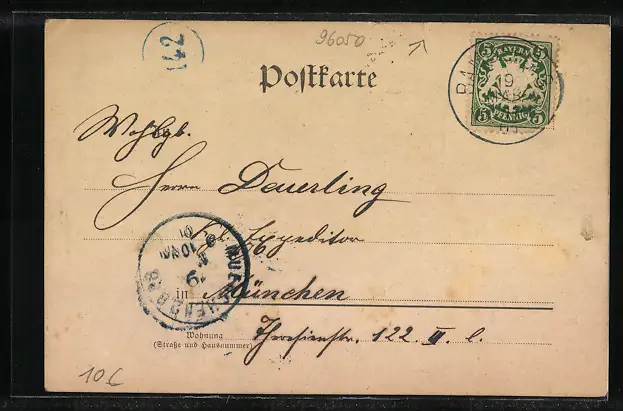 142
96050
Postkarte
5 BAYERN 5
5 PFENNIG 5
19
Wohlgb.
Herrn Deuerling
Expeditor
in München
Theresienstr. 122 III l.
Wohnung
(Straße und Hausnummer)
10 €